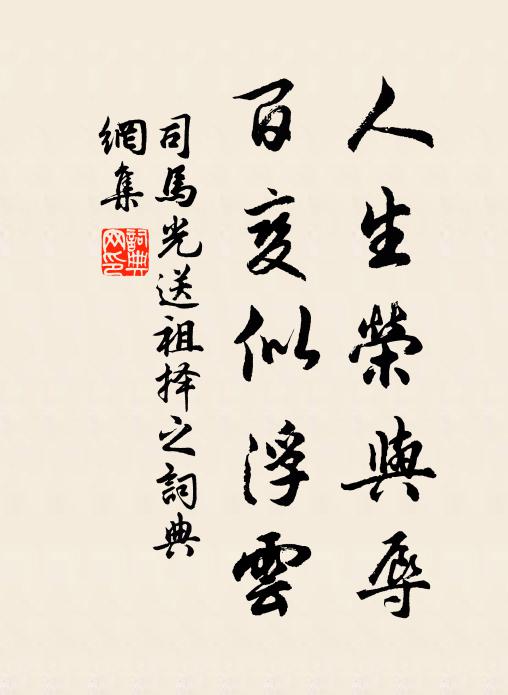 人生榮與辱
百变似浮雲
司馬光送祖择之詞典
網集
詞典網印